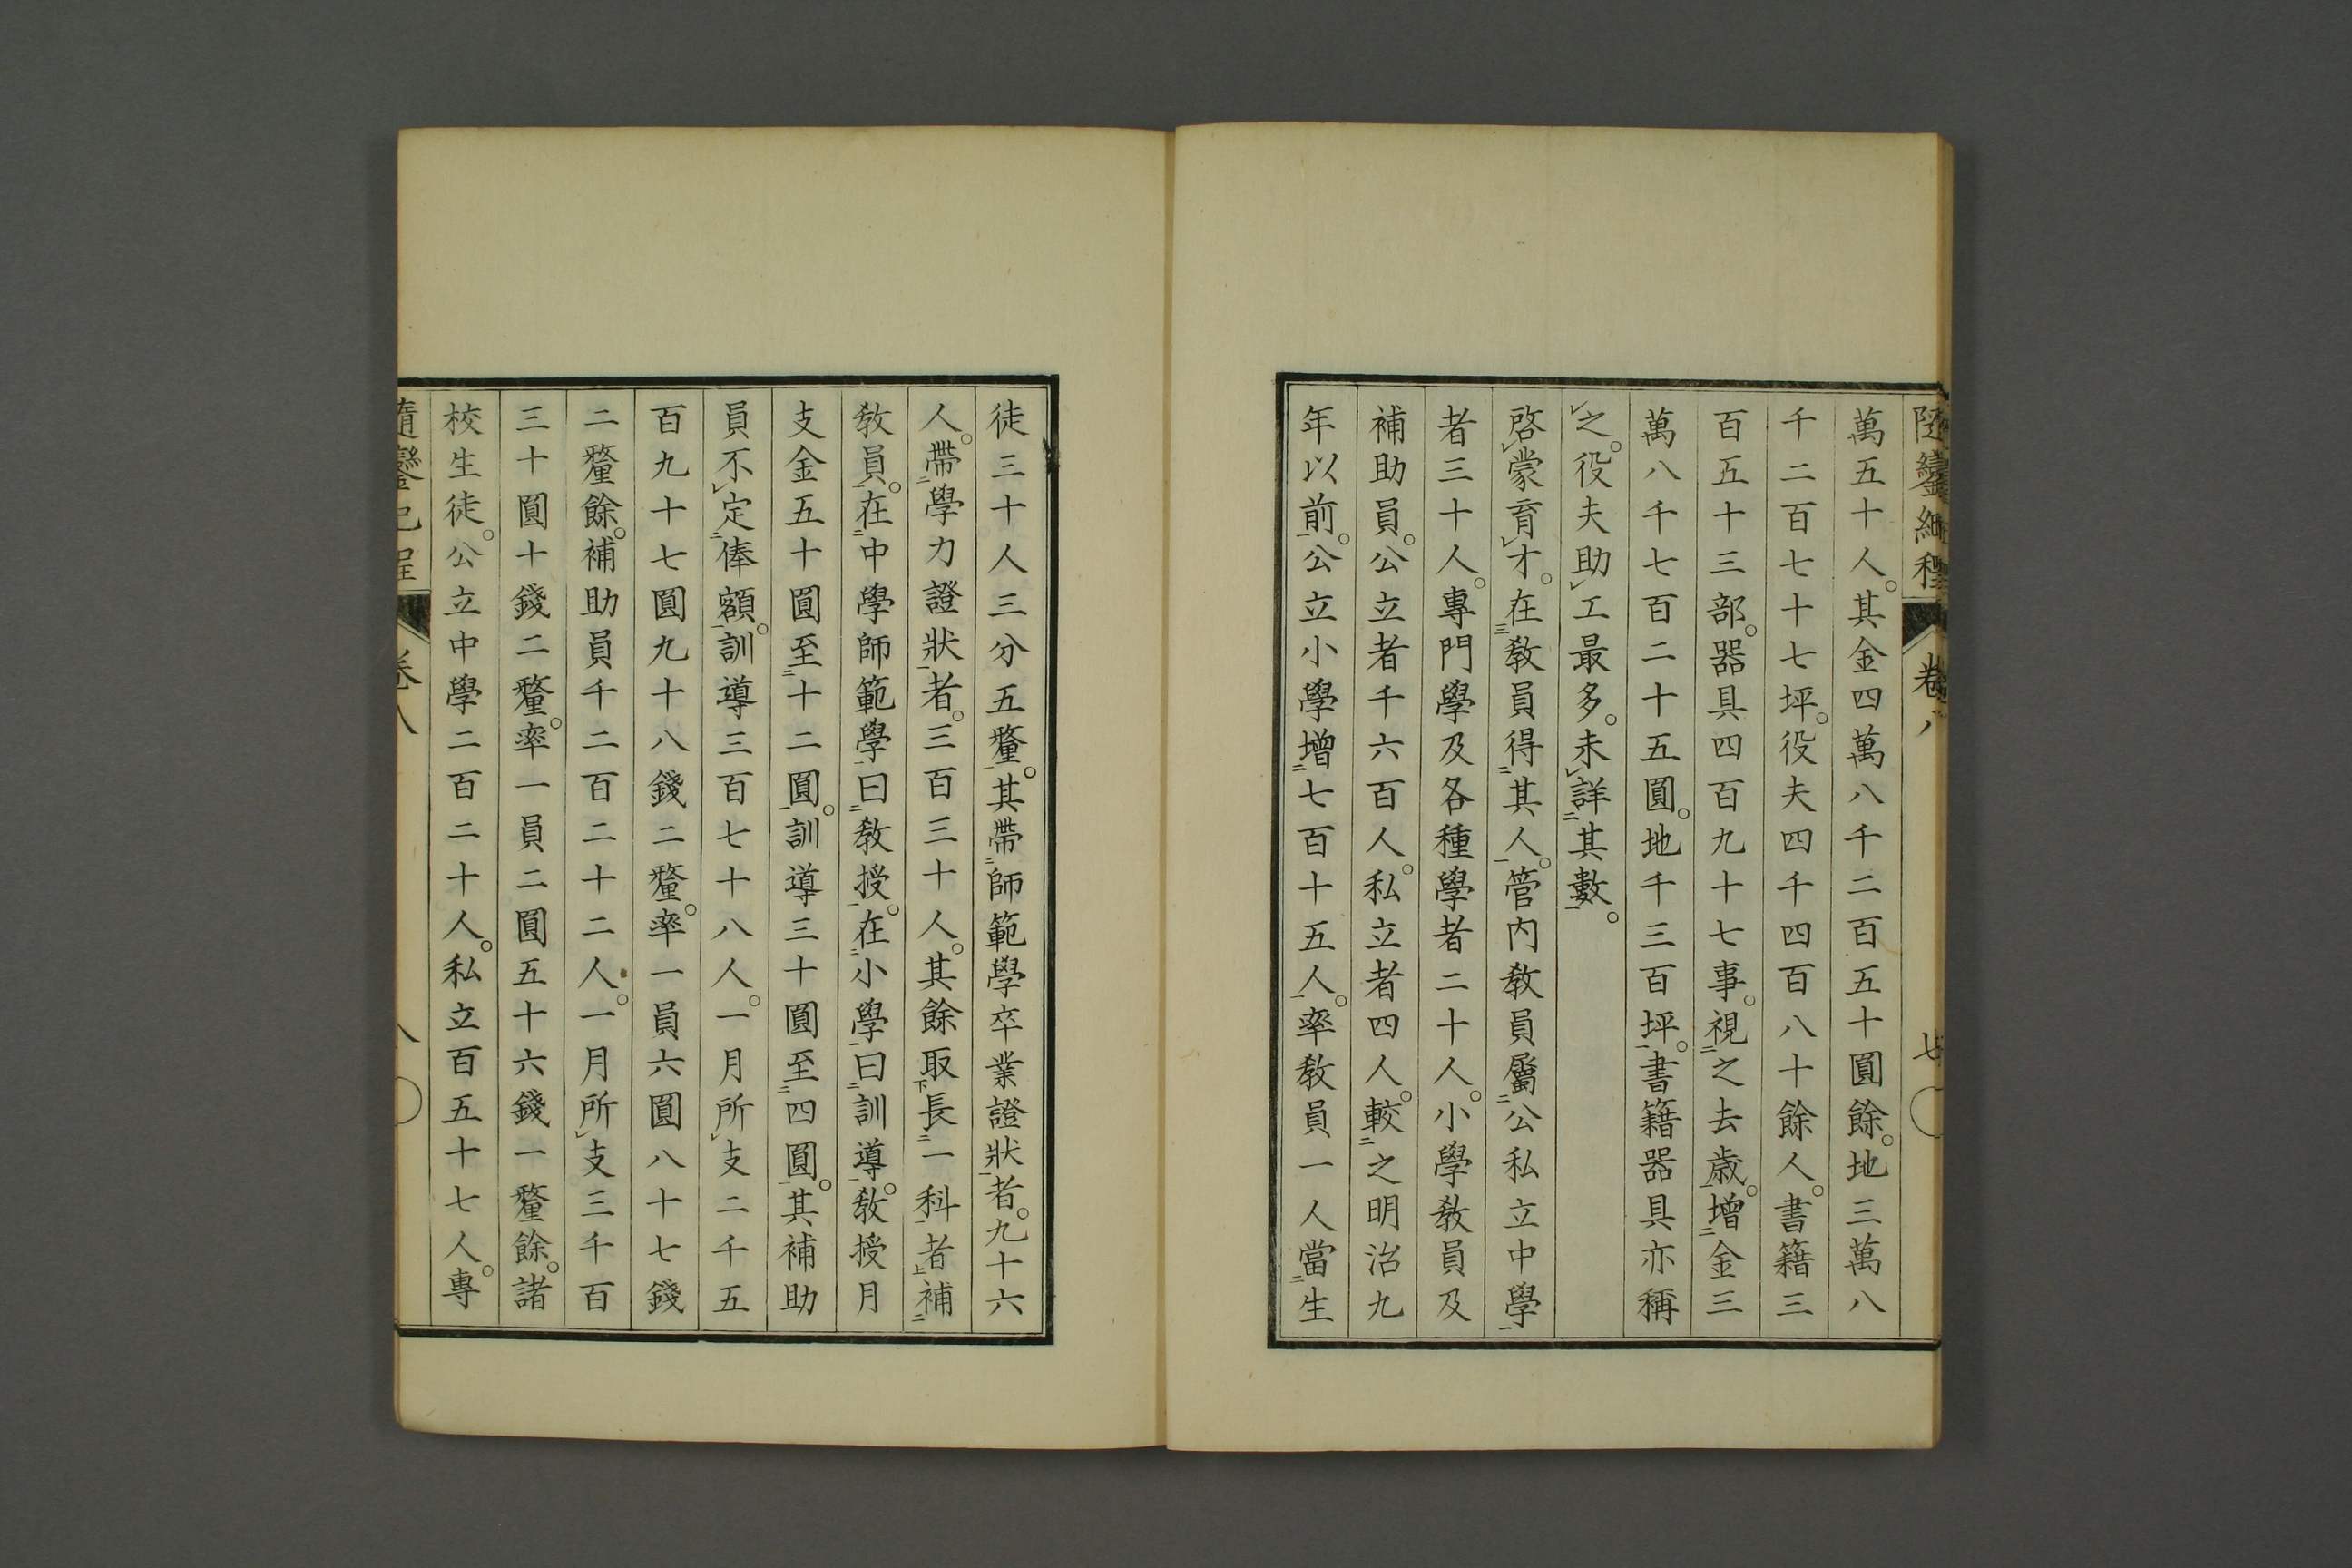 萬五十人。其金四萬八千二百五十圓餘。地三萬八
千二百七十七坪。役夫四千四百八十餘人。書籍三
百五十三部。器具四百九十七事。視二之去歳一。增二金三
萬八千七百二十五圓。地千三百坪一。書籍器具亦稱
レ之。役夫助レ工最多。未レ詳二其數一。
啓レ蒙育レ才。在三敎員得二其人一。管内敎員屬二公私立中學一
者三十人。專門學及各種學者二十人。小學敎員及
補助員。公立者千六百人。私立者四人。較二之明治九
年以前一。公立小學增二七百十五人一。率敎員一人當二生
徒三十人三分五釐一。其帶二師範學卒業證狀一者。九十六
人。帶二學力證狀一者。三百三十人。其餘取下長二一科一者上補二
敎員一。在二中學師範學一曰二敎授一。在二小學一曰二訓導一。敎授月
支金五十圓至二十二圓一。訓導三十圓至二四圓一。其補助
員不レ定二俸額一。訓導三百七十八人。一月所レ支二千五
百九十七圓九十八錢二釐。率一員六圓八十七錢
二釐餘。補助員千二百二十二人。一月所レ支三千百
三十圓十錢二釐。率一員二圓五十六錢一釐餘。諸
校生徒。公立中學二百二十人。私立百五十七人。專
卷八